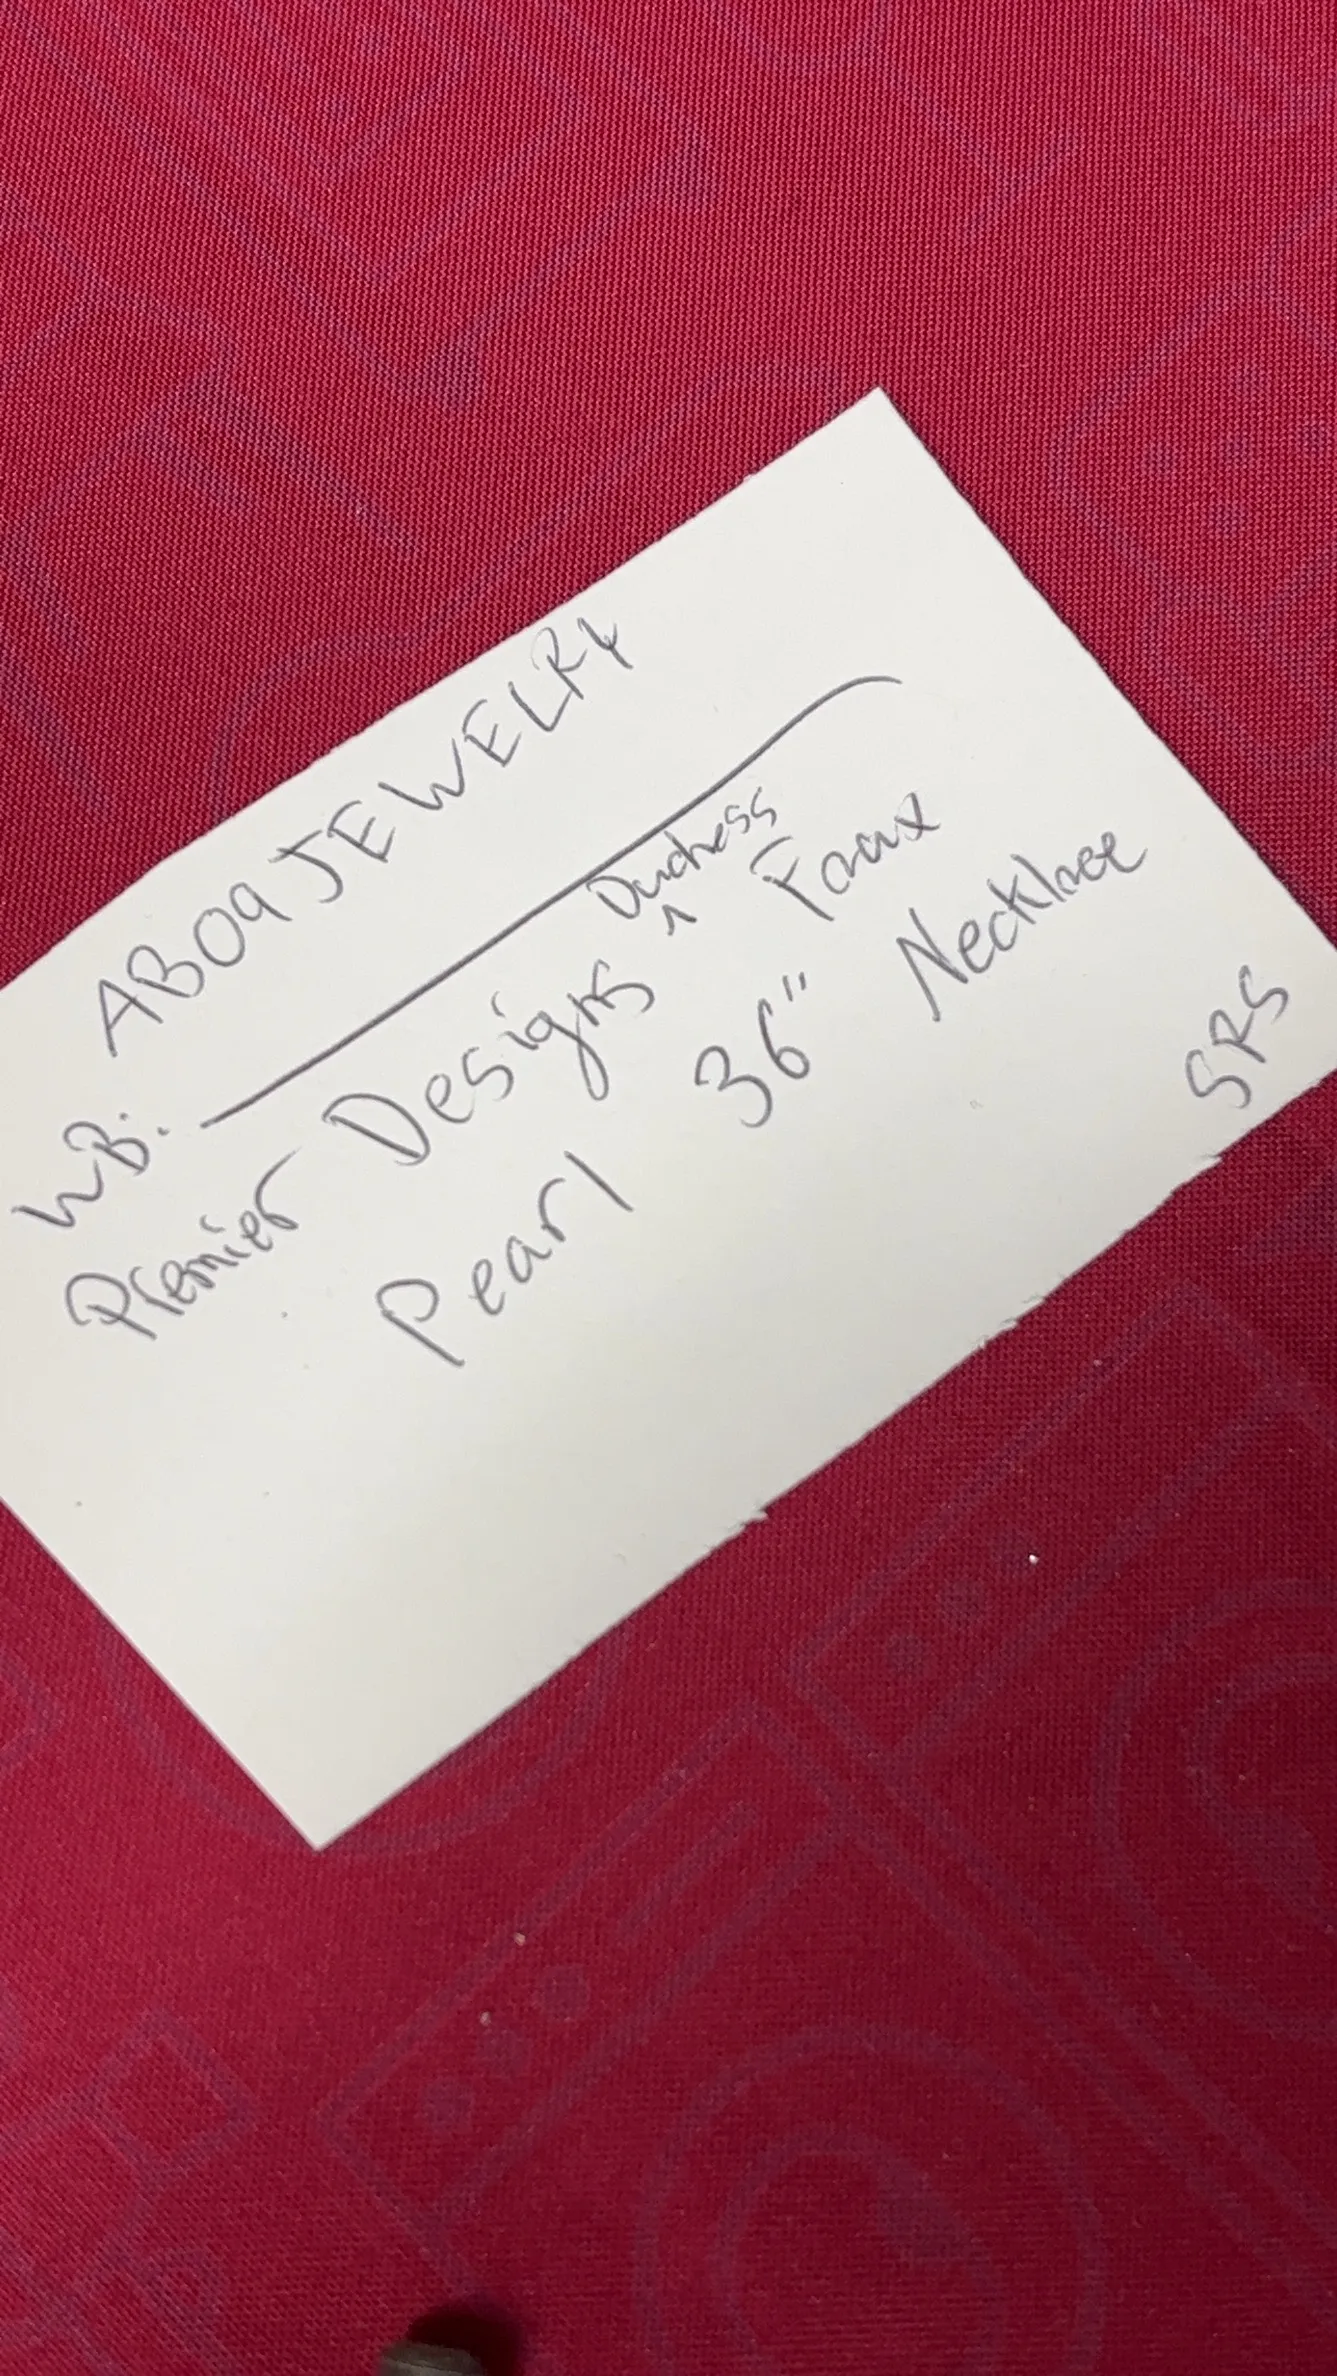 ABOA JEWELRY
WB:
Premier Designs ^ Duchess Faux
Pearl 36" Necklace
SRS